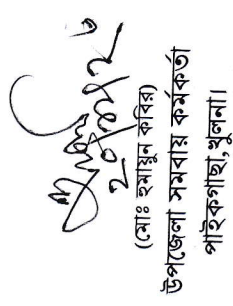 (মোঃ হুমায়ুন কবির)
উপজেলা সমবায় কর্মকর্তা
পাইকগাছা, খুলনা।